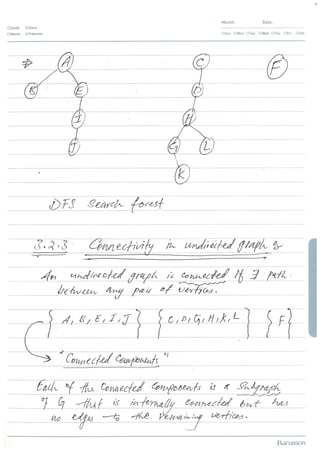 Month. Date.
A C F
B E D
I H
J G L
K
DFS Search forest
3.2.3 Connectivity in undirected graphs
An undirected graph is connected If ∃ path
between any pair of vertices.
{ A, B, E, I, J } { C, D, G, H, K, L } { F }
"Connected Components"
Each of the Connected Components is a Subgraph
of G that is internally connected but has
no edges to the remaining vertices.
Barunson